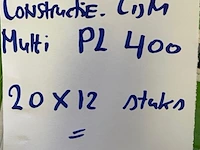 Constructie. CDM
Multi PL 400
20 x 12 stuks
=